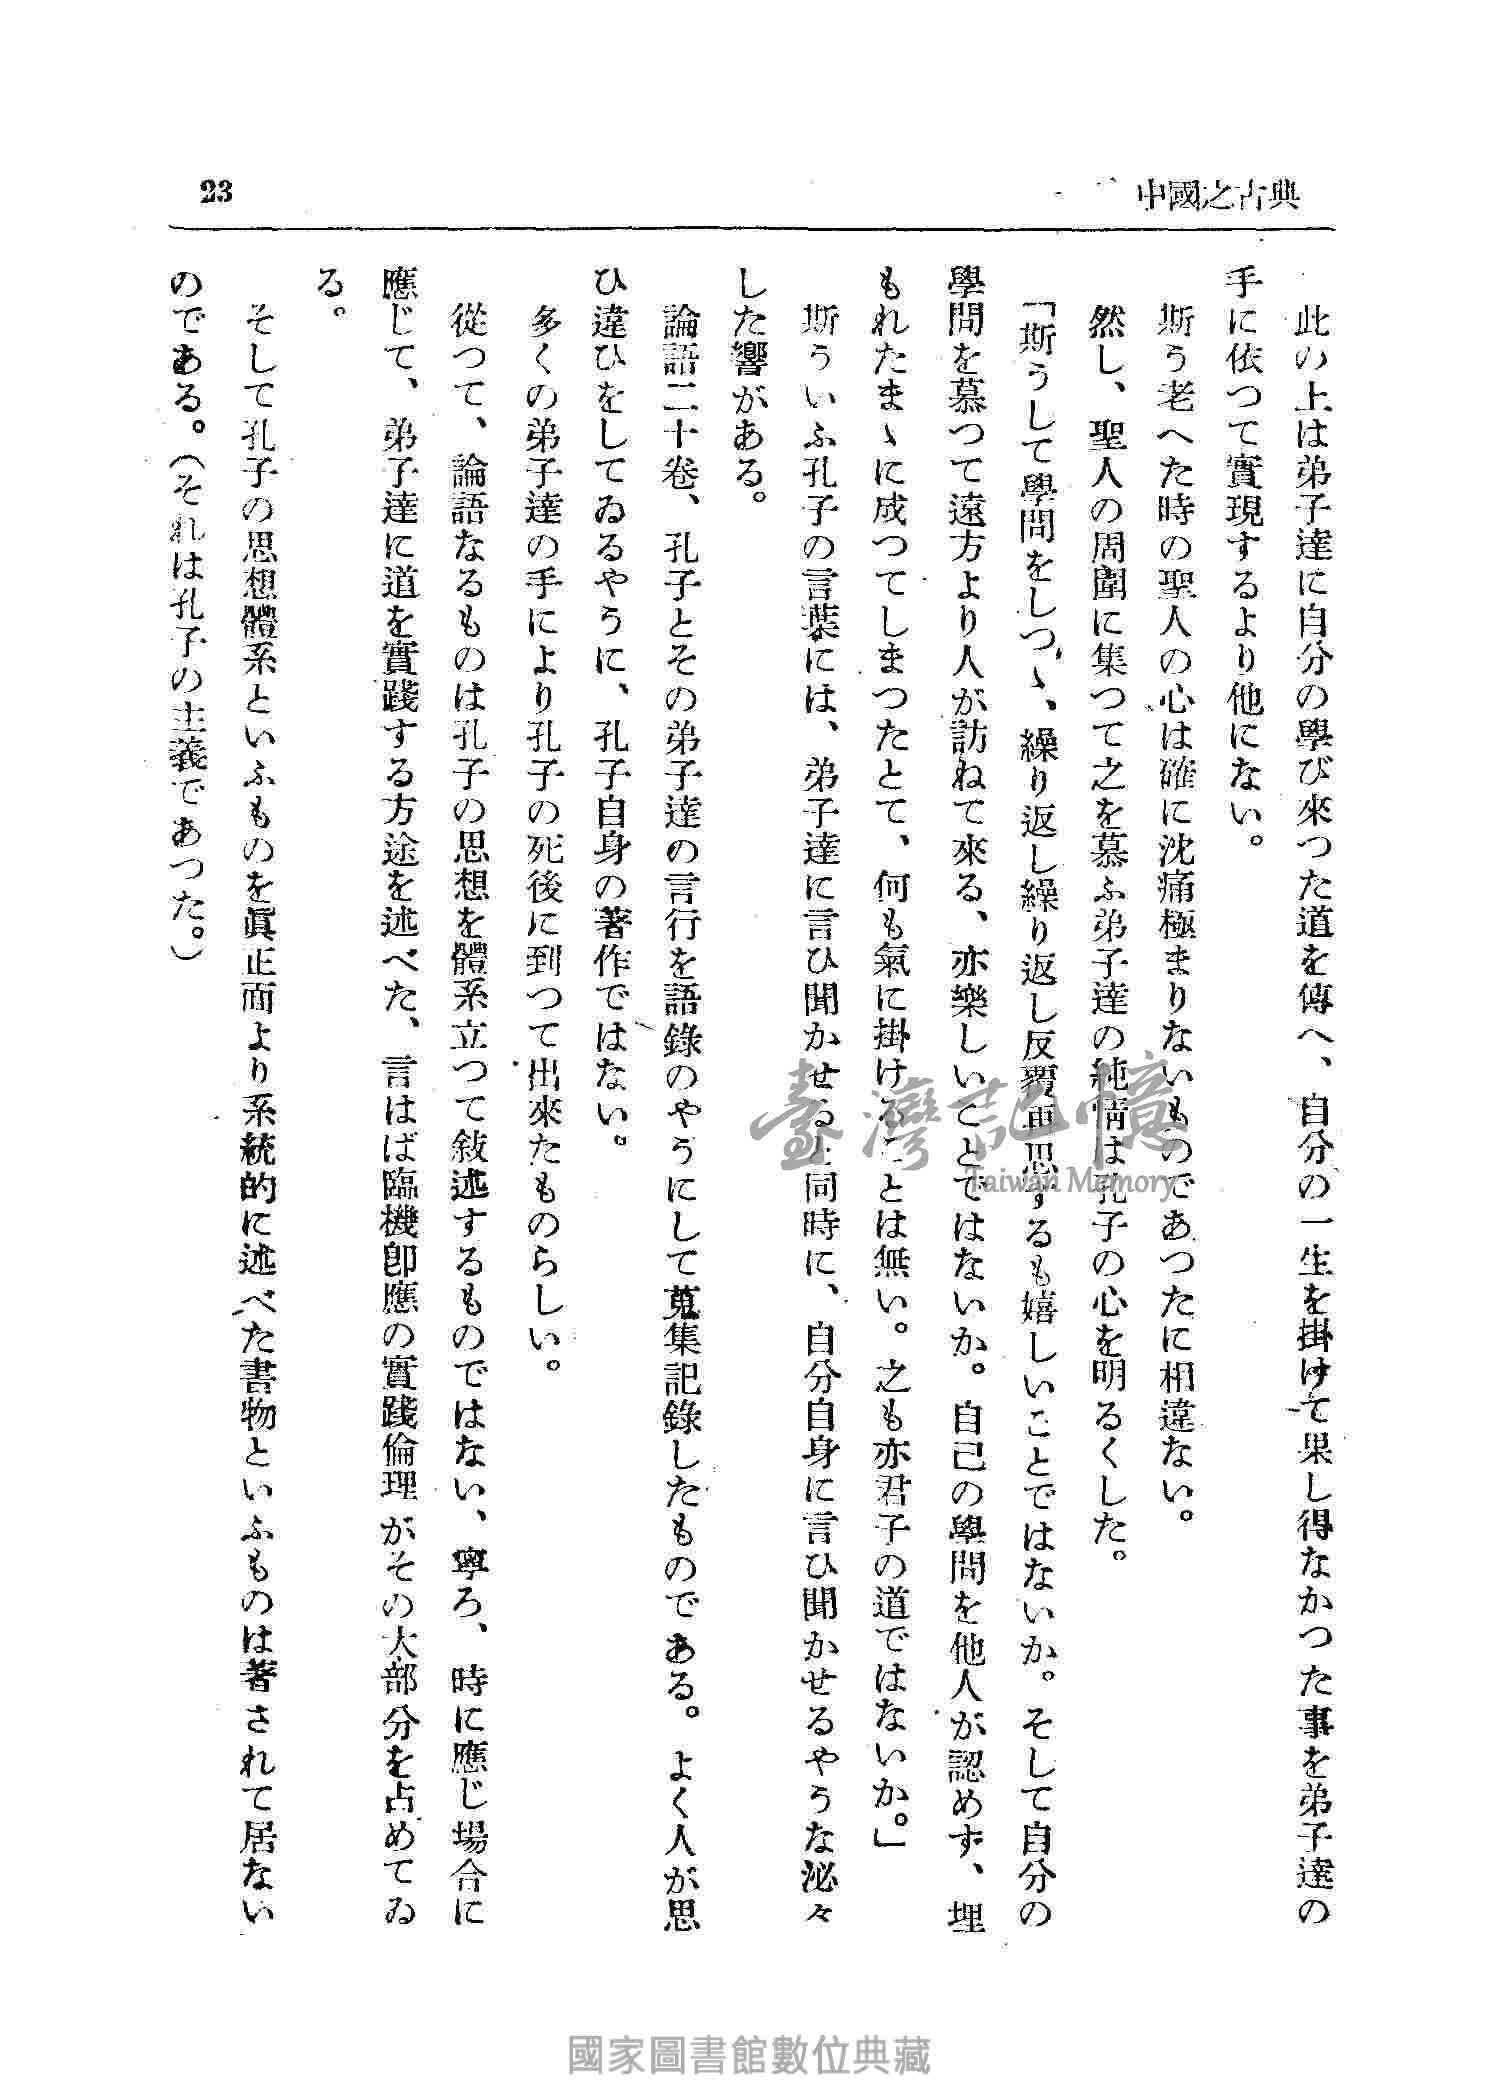 中國之古典
23
此の上は弟子達に自分の學び來つた道を傳へ、自分の一生を掛けて果し得なかつた事を弟子達の
手に依つて實現するより他にない。
斯う老へた時の聖人の心は確に沈痛極まりないものであつたに相違ない。
然し、聖人の周圍に集つて之を慕ふ弟子達の純情は孔子の心を明るくした。
「斯うして學問をしつゝ、繰り返し繰り返し反覆再思するも嬉しいことではないか。そして自分の
學問を慕つて遠方より人が訪ねて來る、亦樂しいことではないか。自己の學問を他人が認めず、埋
もれたまゝに成つてしまつたとて、何も氣に掛けることは無い。之も亦君子の道ではないか。」
斯ういふ孔子の言葉には、弟子達に言ひ聞かせると同時に、自分自身に言ひ聞かせるやうな泌々
した響がある。
論語二十卷、孔子とその弟子達の言行を語錄のやうにして蒐集記錄したものである。よく人が思
ひ違ひをしてゐるやうに、孔子自身の著作ではない。
多くの弟子達の手により孔子の死後に到つて出來たものらしい。
從つて、論語なるものは孔子の思想を體系立つて敍述するものではない、寧ろ、時に應じ場合に
應じて、弟子達に道を實踐する方途を述べた、言はば臨機卽應の實踐倫理がその大部分を占めてゐ
る。
そして孔子の思想體系といふものを眞正面より系統的に述べた書物といふものは著されて居ない
のである。（それは孔子の主義であつた。）
臺灣記憶
Taiwan Memory
國家圖書館數位典藏